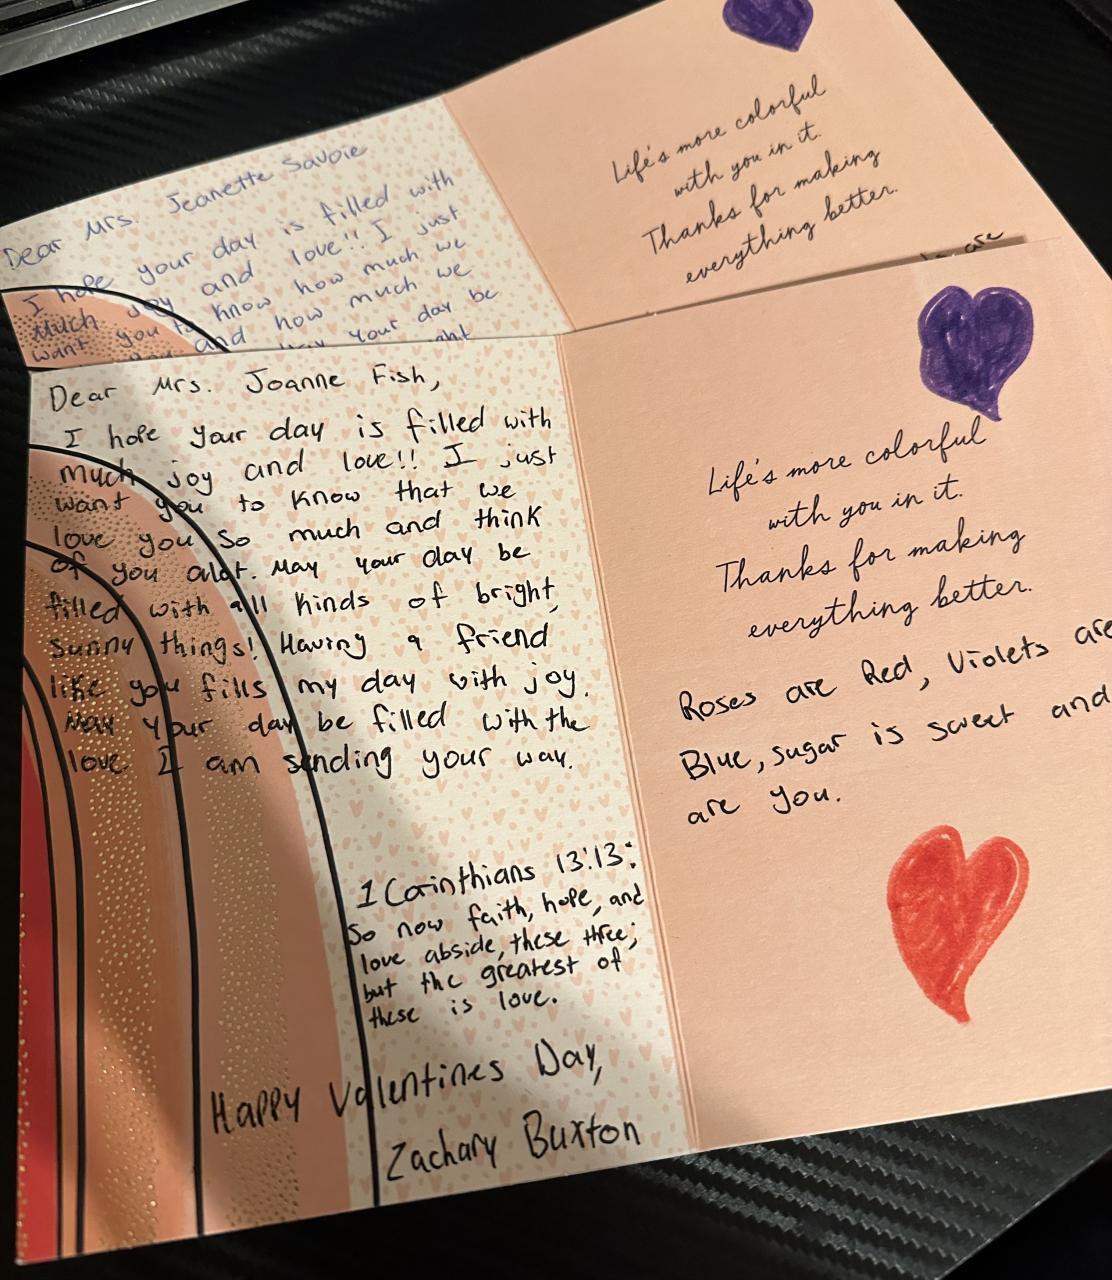 Dear Mrs. Jeanette Savoie
I hope your day is filled with
Much joy and love!! I just
want you to know how much we
and how much we
your day be
Life's more colorful
with you in it.
Thanks for making
everything better.
are
Dear Mrs. Joanne Fish,
I hope your day is filled with
much joy and love!! I just
want you to know that we
love you so much and think
of you alot. May your day be
filled with all kinds of bright,
sunny things! Having a friend
like you fills my day with joy.
May your day be filled with the
love I am sending your way.
1 Corinthians 13:13:
So now faith, hope, and
love abside, these three;
but the greatest of
these is love.
Happy Valentines Day,
Zachary Buxton
Life's more colorful
with you in it.
Thanks for making
everything better.
Roses are Red, Violets are
Blue, sugar is sweet and
are you.